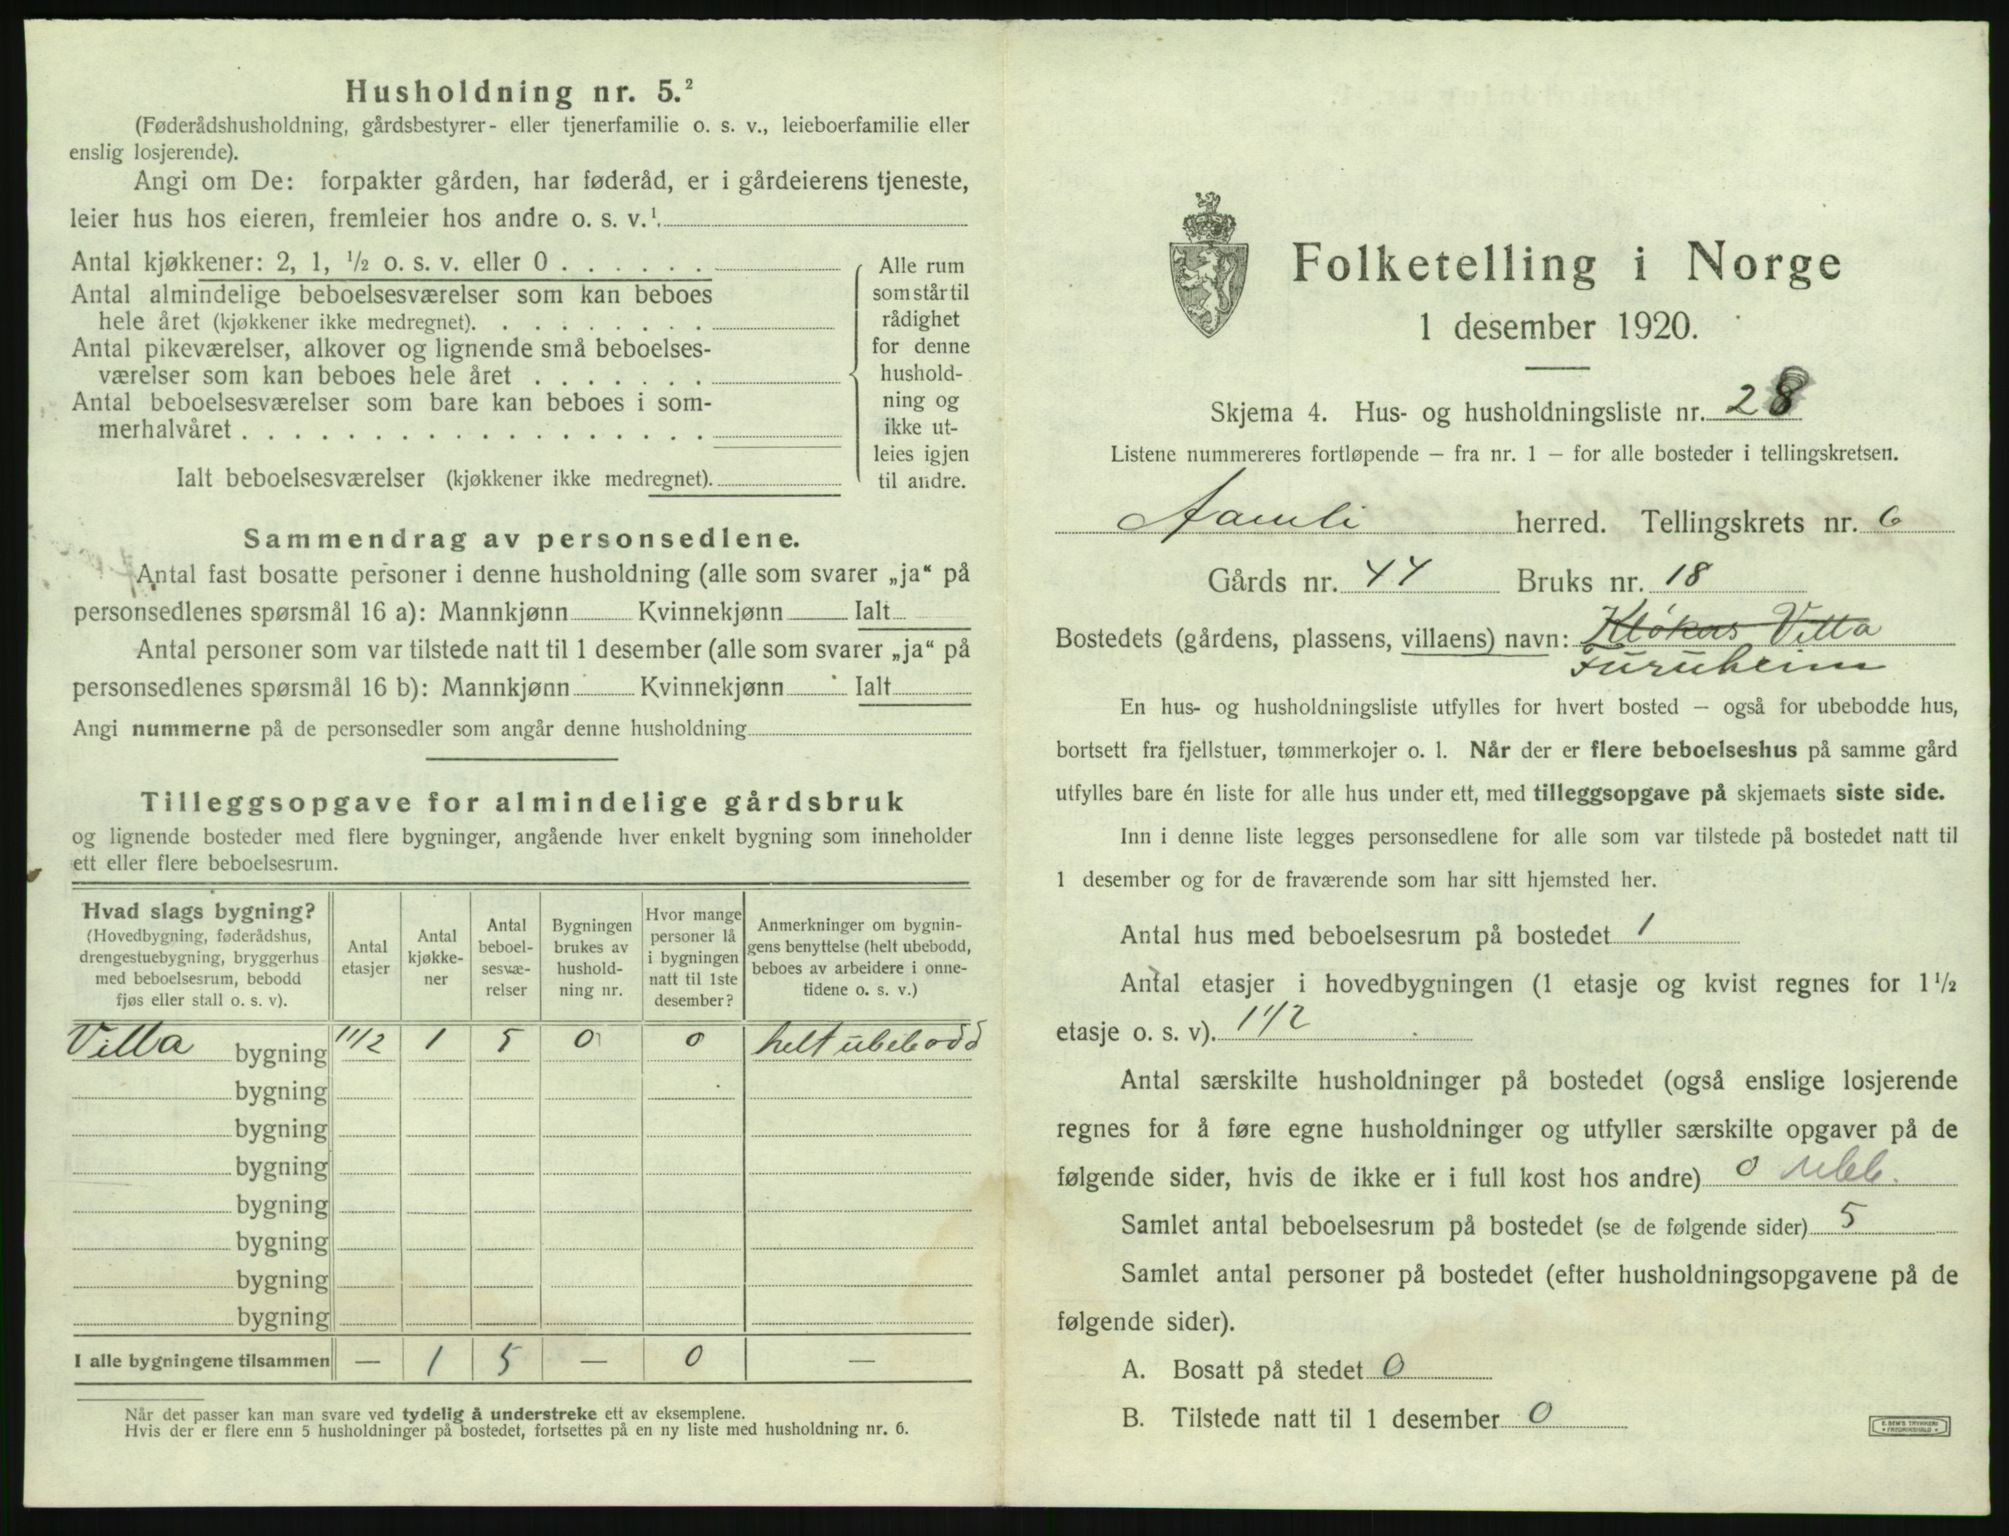 Husholdning nr. 5.²
(Føderådshusholdning, gårdsbestyrer- eller tjenerfamilie o. s. v., leieboerfamilie eller
enslig losjerende).
Angi om De: forpakter gården, har føderåd, er i gårdeierens tjeneste,
leier hus hos eieren, fremleier hos andre o. s. v.¹
Antal kjøkkener: 2, 1, ½ o. s. v. eller 0
Antal almindelige beboelsesværelser som kan beboes
hele året (kjøkkener ikke medregnet).
Antal pikeværelser, alkover og lignende små beboelses-
værelser som kan beboes hele året
Antal beboelsesværelser som bare kan beboes i som-
merhalvåret
Ialt beboelsesværelser (kjøkkener ikke medregnet).
Alle rum
som står til
rådighet
for denne
hushold-
ning og
ikke ut-
leies igjen
til andre.
Sammendrag av personsedlene.
Antal fast bosatte personer i denne husholdning (alle som svarer „ja“ på
personsedlenes spørsmål 16 a): Mannkjønn Kvinnekjønn Ialt
Antal personer som var tilstede natt til 1 desember (alle som svarer „ja“ på
personsedlenes spørsmål 16 b): Mannkjønn Kvinnekjønn Ialt
Angi nummerne på de personsedler som angår denne husholdning
Tilleggsopgave for almindelige gårdsbruk
og lignende bosteder med flere bygninger, angående hver enkelt bygning som inneholder
ett eller flere beboelsesrum.
Hvad slags bygning?
(Hovedbygning, føderådshus,
drengestuebygning, bryggerhus
med beboelsesrum, bebodd
fjøs eller stall o. s. v).
Antal
etasjer
Antal
kjøkke-
ner
Antal
beboel-
sesvæ-
relser
Bygningen
brukes av
hushold-
ning nr.
Hvor mange
personer lå
i bygningen
natt til 1ste
desember?
Anmerkninger om bygnin-
gens benyttelse (helt ubebodd,
beboes av arbeidere i onne-
tidene o. s. v.)
Villa bygning 1 1/2 1 5 0 0 helt ubebodd
bygning
bygning
bygning
bygning
bygning
bygning
bygning
I alle bygningene tilsammen — 1 5 — 0 —
Når det passer kan man svare ved tydelig å understreke ett av eksemplene.
Hvis der er flere enn 5 husholdninger på bostedet, fortsettes på en ny liste med husholdning nr. 6.
Folketelling i Norge
1 desember 1920.
Skjema 4. Hus- og husholdningsliste nr. 28
Listene nummereres fortløpende — fra nr. 1 — for alle bosteder i tellingskretsen.
Aamli herred. Tellingskrets nr. 6
Gårds nr. 44 Bruks nr. 18
Bostedets (gårdens, plassens, villaens) navn: Kløkers Villa
Furuheim
En hus- og husholdningsliste utfylles for hvert bosted — også for ubebodde hus,
bortsett fra fjellstuer, tømmerkojer o. l. Når der er flere beboelseshus på samme gård
utfylles bare én liste for alle hus under ett, med tilleggsopgave på skjemaets siste side.
Inn i denne liste legges personsedlene for alle som var tilstede på bostedet natt til
1 desember og for de fraværende som har sitt hjemsted her.
Antal hus med beboelsesrum på bostedet 1
Antal etasjer i hovedbygningen (1 etasje og kvist regnes for 1½
etasje o. s. v). 1 1/2
Antal særskilte husholdninger på bostedet (også enslige losjerende
regnes for å føre egne husholdninger og utfyller særskilte opgaver på de
følgende sider, hvis de ikke er i full kost hos andre) 0 Ubb.
Samlet antal beboelsesrum på bostedet (se de følgende sider) 5
Samlet antal personer på bostedet (efter husholdningsopgavene på de
følgende sider).
A. Bosatt på stedet 0
B. Tilstede natt til 1 desember 0
E. SEM'S TRYKKERI
FREDRIKSHALD